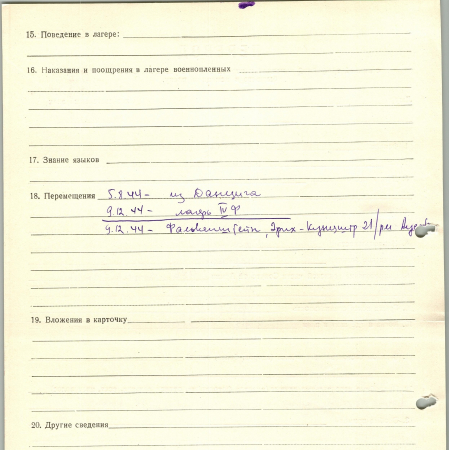 15. Поведение в лагере:
16. Наказания и поощрения в лагере военнопленных
17. Знание языков
18. Перемещения 5.8.44 - из Данцига
9.12.44 - лагерь IV Ф
9.12.44 - Фалькенштейн, 21/
19. Вложения в карточку
20. Другие сведения